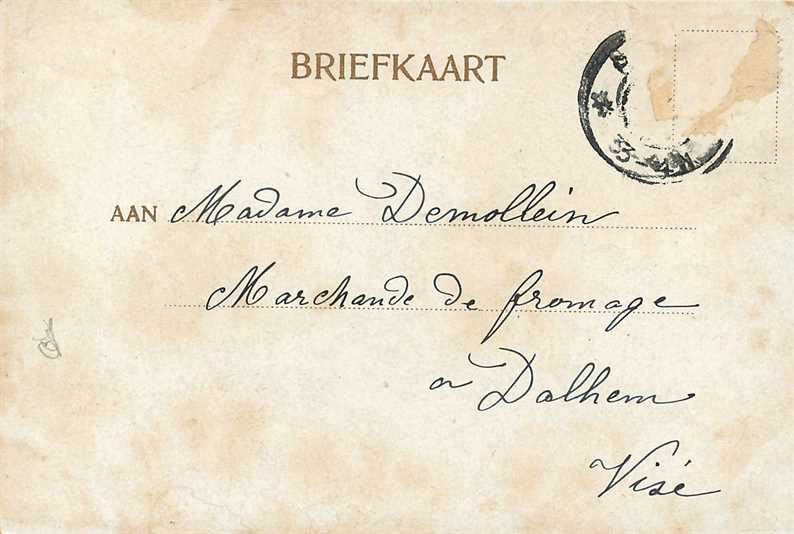 BRIEFKAART
AAN Madame Demollein
Marchande de fromage
a Dalhem
Visé